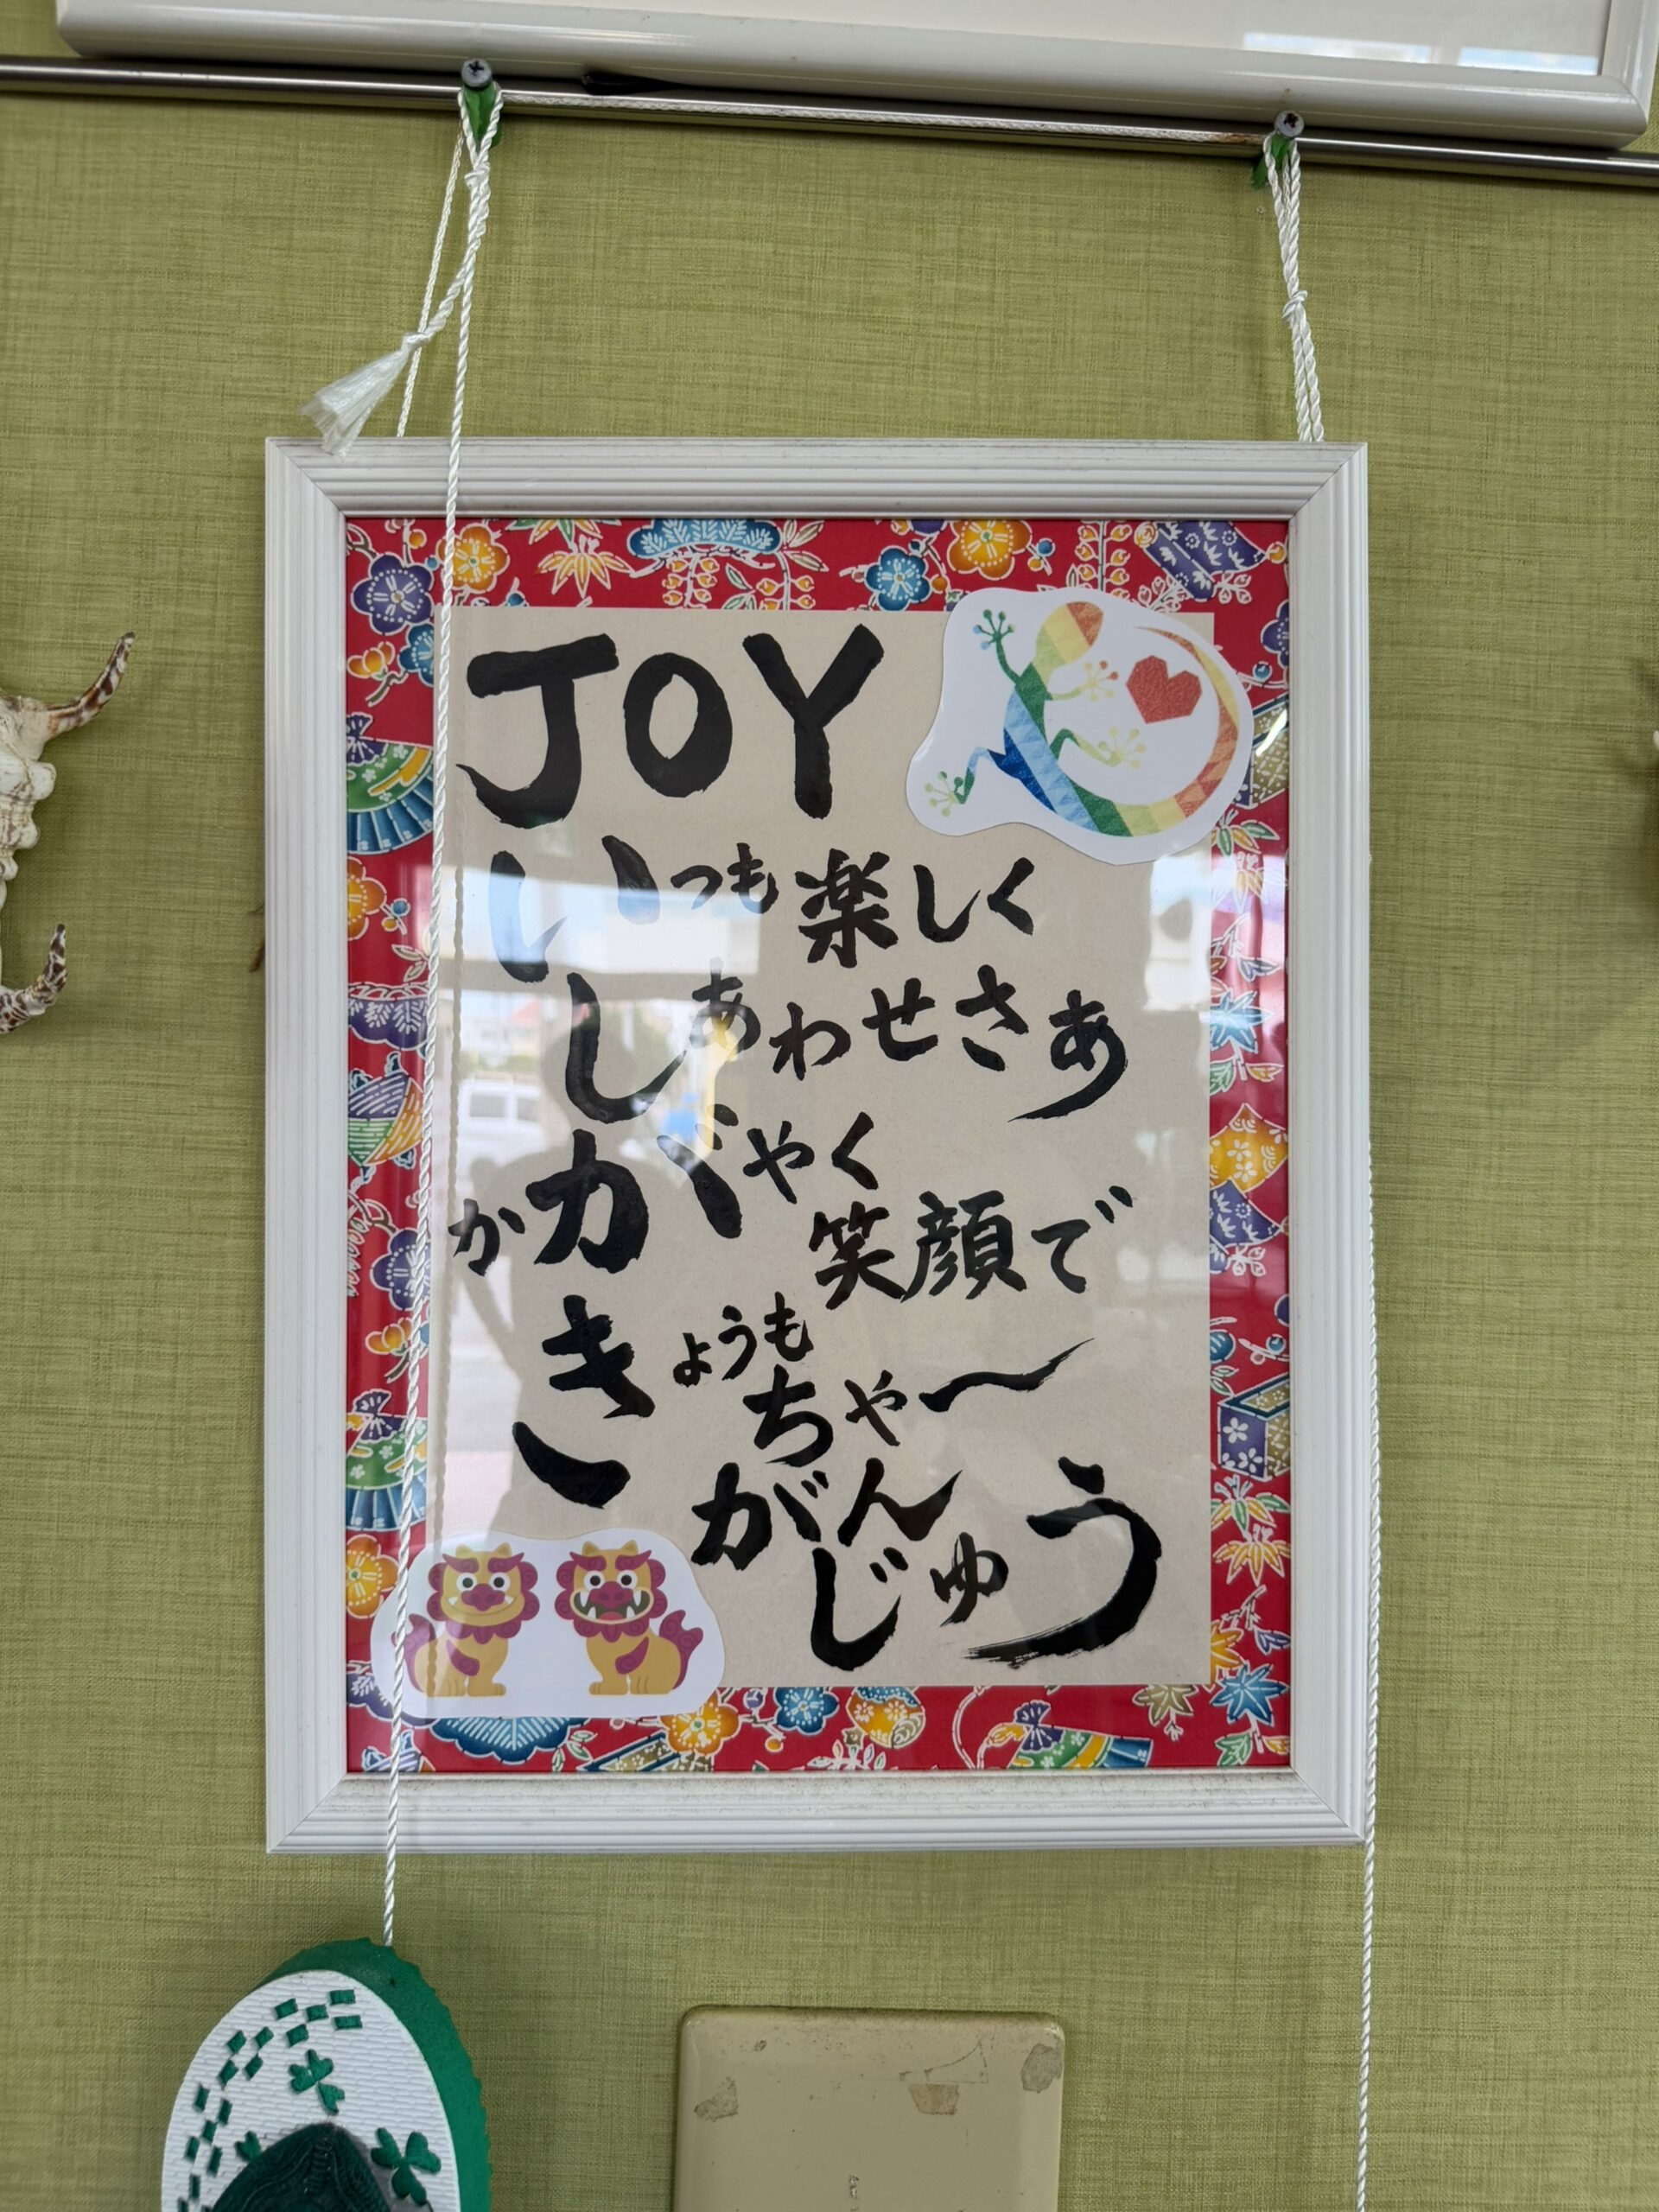 JOY
いつも楽しく
しあわせさぁ
かがやく
笑顔で
きょうも
ちゃ〜
がん
じゅう